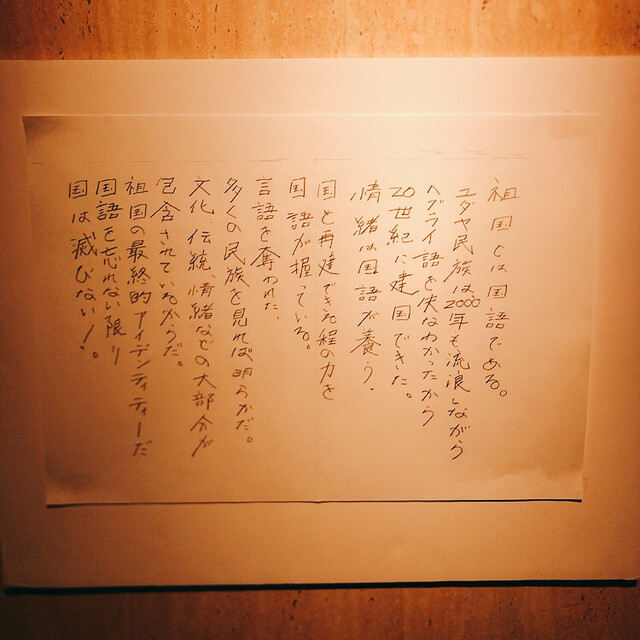 祖国とは国語である。
ユダヤ民族は2000年も流浪しながら
ヘブライ語を失なわかったから
20世紀に建国できた。
情緒は国語が養う.
国と再建できる程の力を
国語が握っている。
言語を奪われた、
多くの民族を見れば明らかだ。
文化、伝統、情緒などの大部分が
包含されているからだ。
祖国の最終的アイデンティティーだ
国語を忘れない限り
国は滅びない!。